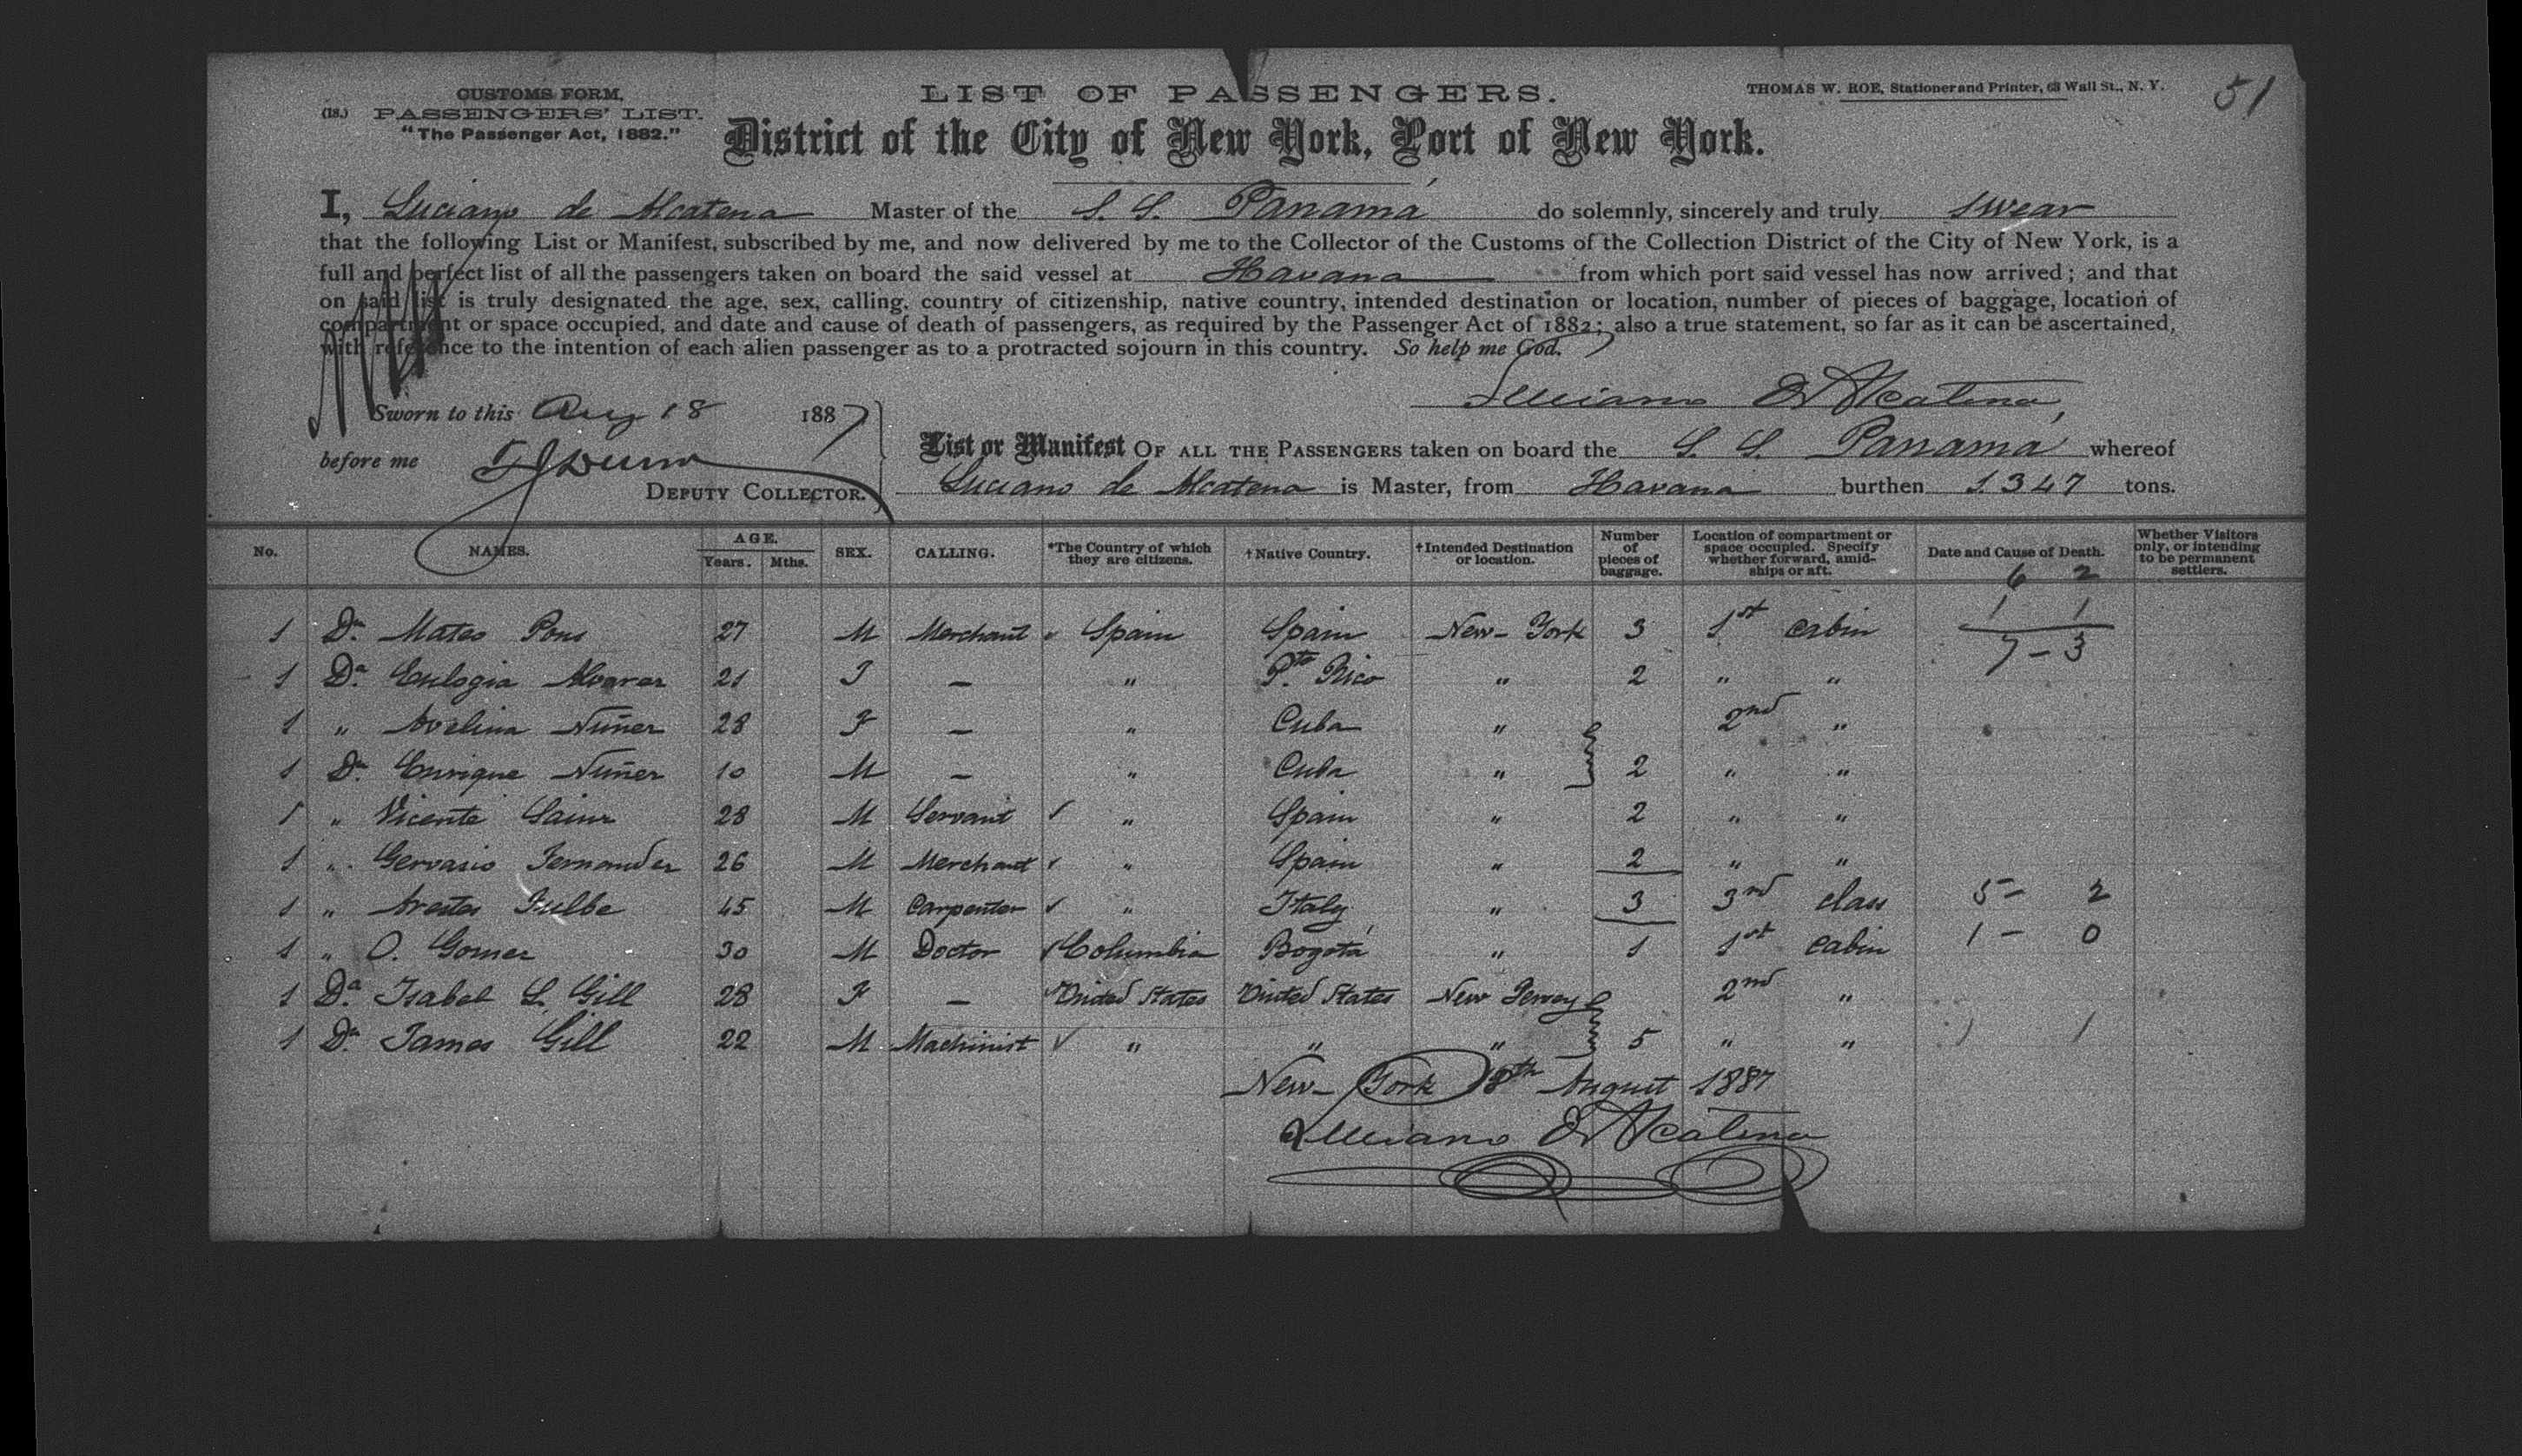 CUSTOMS FORM,
(18.) PASSENGERS' LIST.
"The Passenger Act, 1882."
LIST OF PASSENGERS.
THOMAS W. ROE, Stationer and Printer, 63 Wall St., N. Y.
51
District of the City of New York, Port of New York.
I, Luciano de Alcatena Master of the S. S. Panamá do solemnly, sincerely and truly swear
that the following List or Manifest, subscribed by me, and now delivered by me to the Collector of the Customs of the Collection District of the City of New York, is a
full and perfect list of all the passengers taken on board the said vessel at Havana from which port said vessel has now arrived; and that
on said list is truly designated the age, sex, calling, country of citizenship, native country, intended destination or location, number of pieces of baggage, location of
compartment or space occupied, and date and cause of death of passengers, as required by the Passenger Act of 1882; also a true statement, so far as it can be ascertained,
with reference to the intention of each alien passenger as to a protracted sojourn in this country. So help me God.
Luciano D Alcatena
Sworn to this Aug 18 1887
before me
DEPUTY COLLECTOR.
List or Manifest OF ALL THE PASSENGERS taken on board the S. S. Panamá whereof
Luciano de Alcatena is Master, from Havana burthen 1.347 tons.
No. NAMES. AGE. Years. Mths. SEX. CALLING. *The Country of which they are citizens. †Native Country. †Intended Destination or location. Number of pieces of baggage. Location of compartment or space occupied. Specify whether forward, amidships or aft. Date and Cause of Death. Whether Visitors only, or intending to be permanent settlers.
6 2
1 Dn. Mateo Pons 27 M Merchant Spain Spain New-York 3 1st cabin 1 1
7 - 3
1 Da. Eulogia Alvarez 21 F — " Pto. Rico " 2 " "
1 " Avelina Nuñez 28 F — " Cuba " 2nd "
1 Dn. Enrique Nuñez 10 M — " Cuba " 2 " "
1 " Vicente Sainz 28 M Servant ✓ " Spain " 2 " "
1 " Gervasio Fernandez 26 M Merchant ✓ " Spain " 2 " "
1 " 45 M Carpenter ✓ " Italy " 3 3rd class 5 - 2
1 " O. Gomez 30 M Doctor ✓ Columbia Bogotá " 1 1st cabin 1 - 0
1 Da. Isabel S. Gill 28 F — ✓ United States United States New Jersey 2nd "
1 Dn. James Gill 22 M Machinist ✓ " " " 5 " " 1 1
New-York 18th August 1887
Luciano D Alcatena